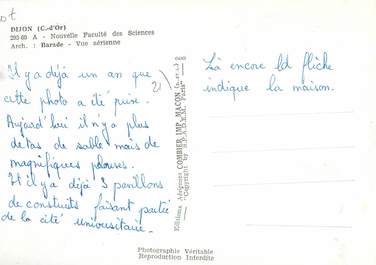 DIJON (C.-d'Or)
293-60 A - Nouvelle Faculté des Sciences
Arch. : Barade - Vue aérienne
Il y a déjà un an que
cette photo a été prise.
Aujourd'hui il n'y a plus
de tas de sable mais de
magnifiques pelouses.
Et il y a déjà 3 pavillons
de construits faisant partie
de la cité universitaire.
Là encore la flèche
indique la maison.
Editions Aériennes COMBIER IMP. MACON
"Copyright by S.P.A.D.E.M. Paris"
Photographie Véritable
Reproduction Interdite